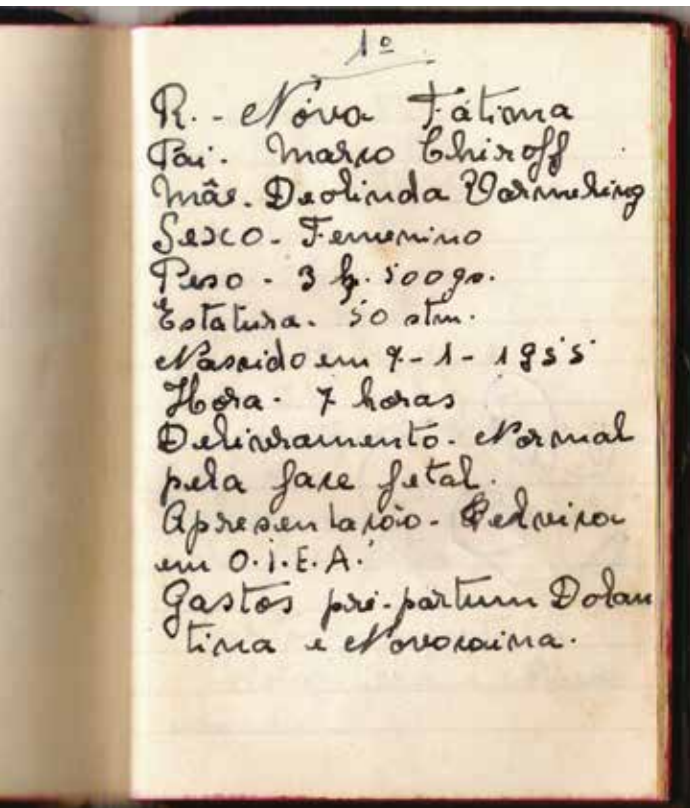 1º
R. - Nova Fátima
Pai. Mario Chiroff
Mãe. Deolinda Warmeling
Sexo - Femenino
Peso - 3 k. 500gs.
Estatura. 50 stm.
Nascido em 7-1-1955
Hora. 7 horas
Delivramento. Normal
pela face fetal.
Apresentação - Pelvica
em O.I.E.A.
Gastos pré-partum Dolan
tina e Novocaina.